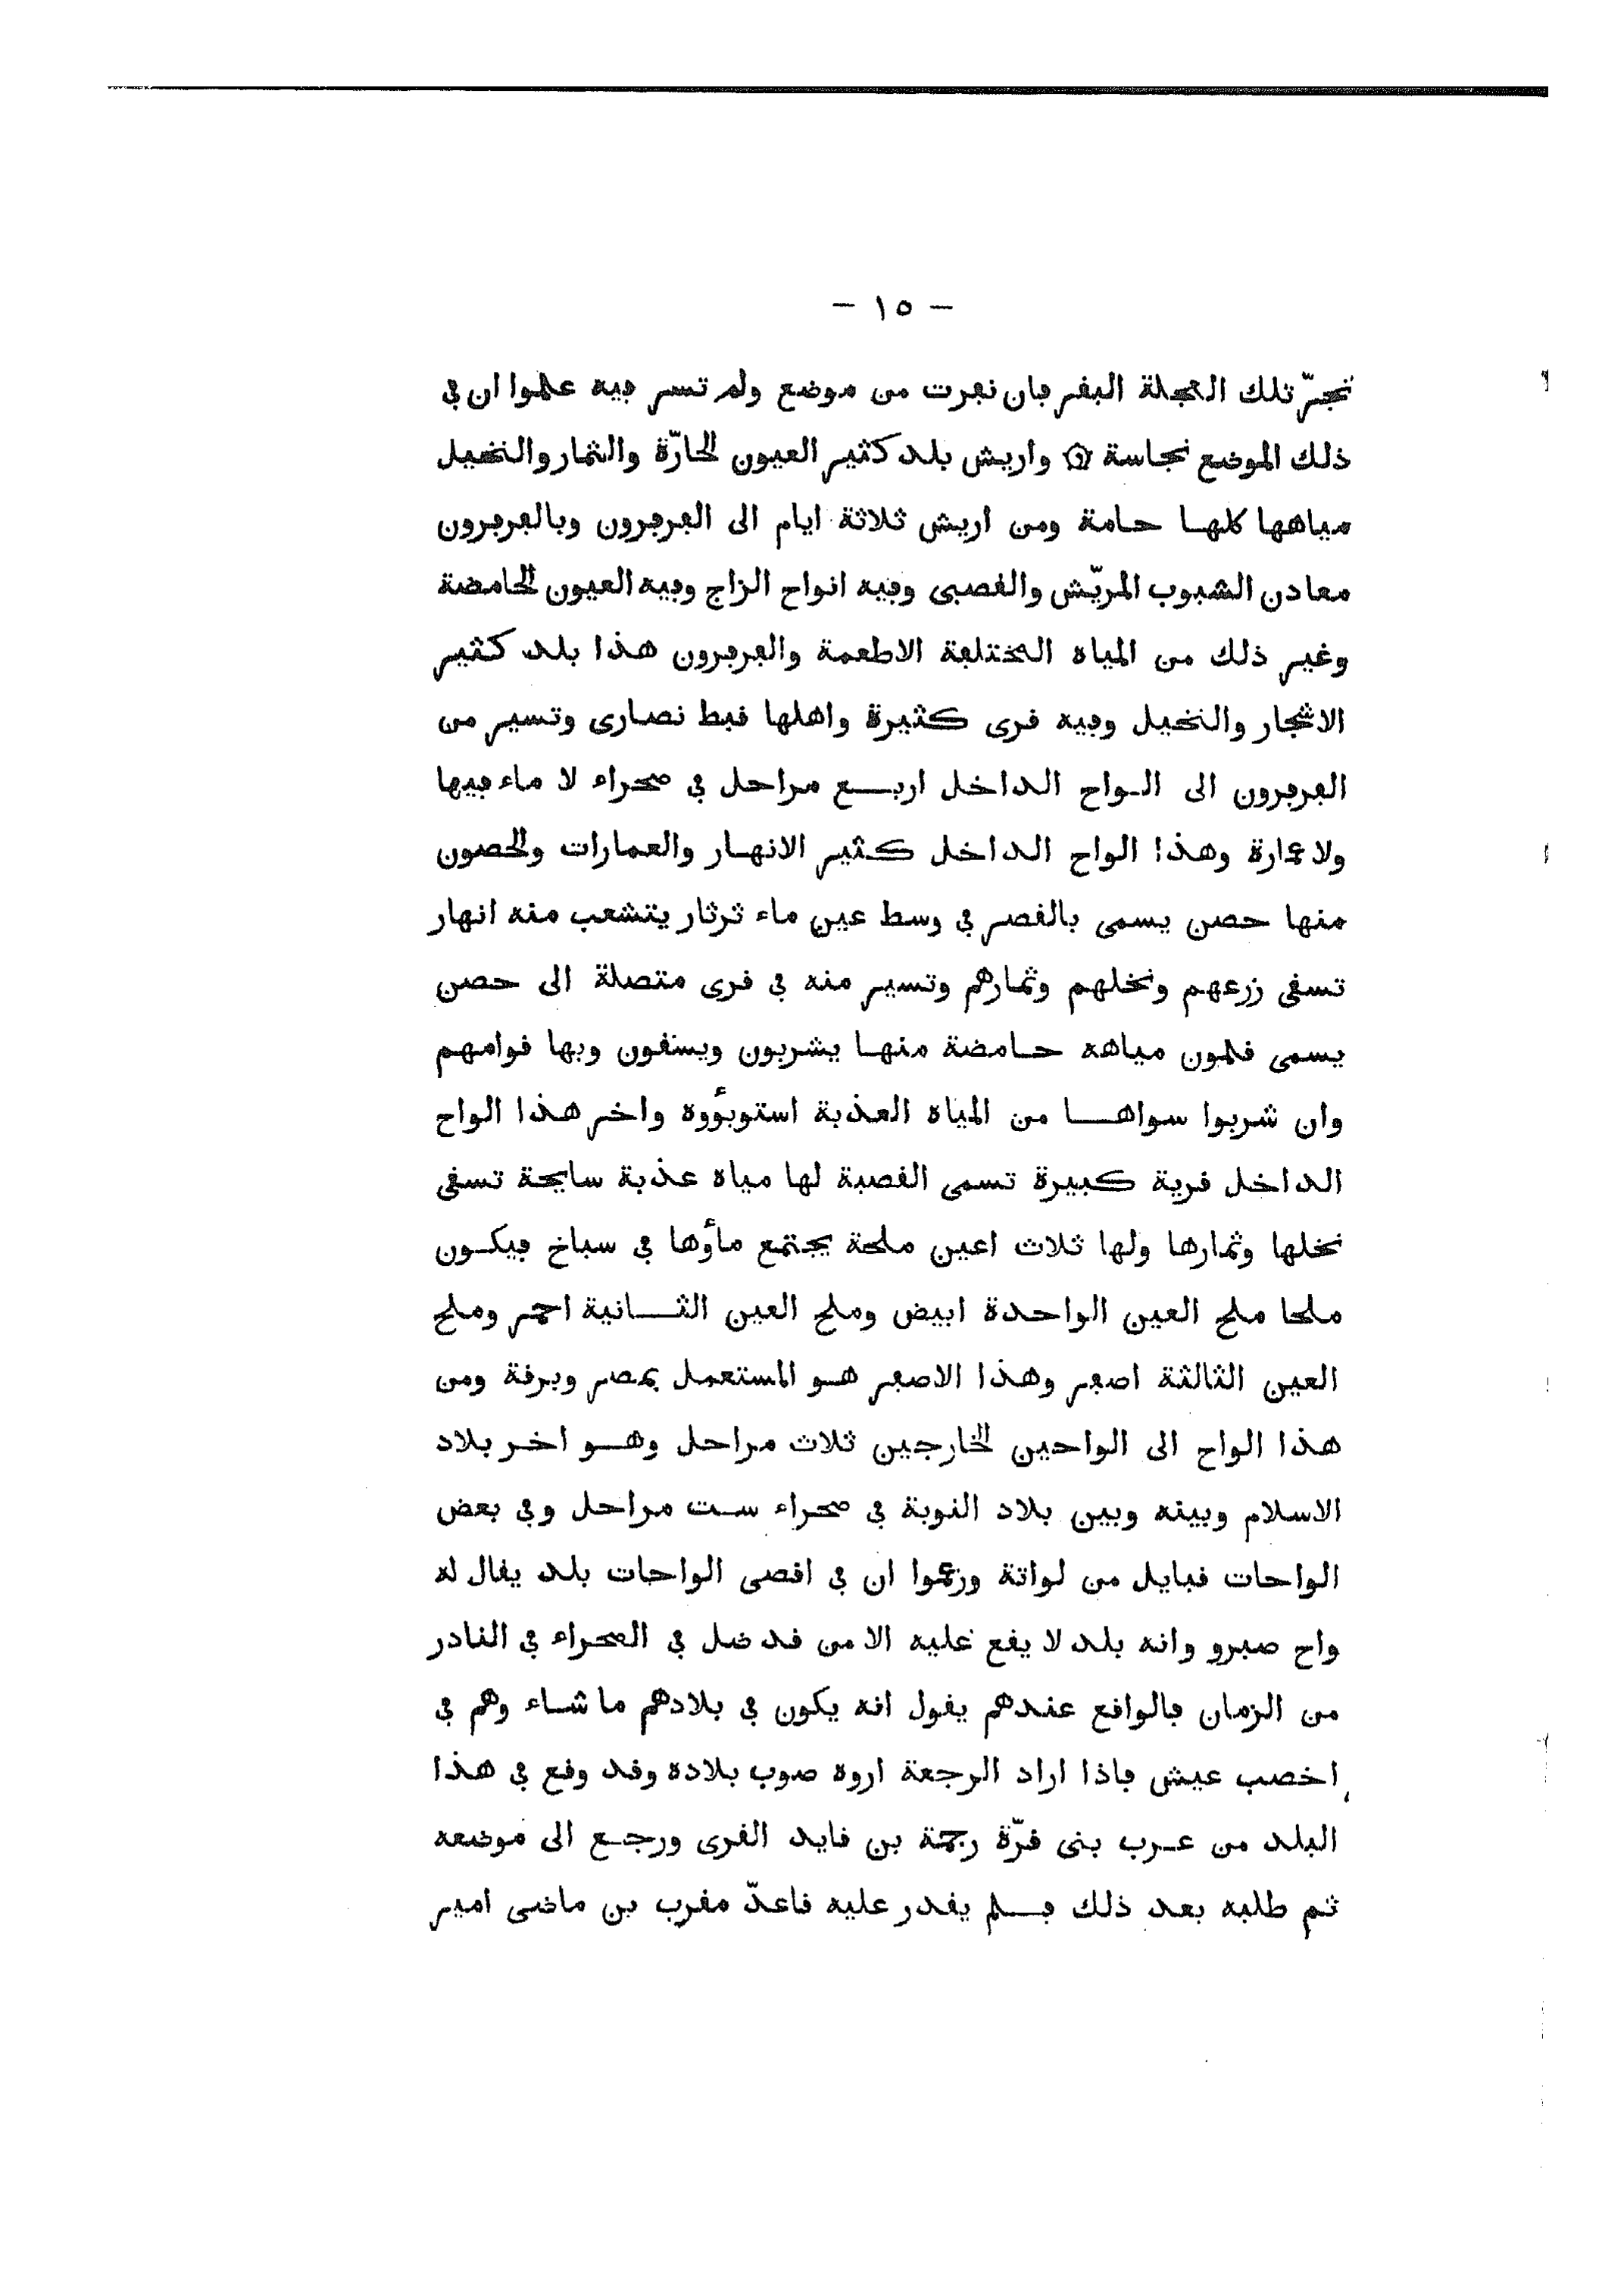 - ١٥ -
تجرّ تلك العجلة البقر فان نفرت من موضع ولم تسر فيه علموا ان في
ذلك الموضع نجاسة ۞ واريش بلد كثير العيون الحارّة والثمار والنخيل
مياهها كلها حامة ومن اريش ثلاثة ايام الى الفرفرون وبالفرفرون
معادن الشبوب المريّش والقصبى وفيه انواح الزاج وفيه العيون الحامضة
وغير ذلك من المياه المختلفة الاطعمة والفرفرون هذا بلد كثير
الاشجار والنخيل وفيه قرى كثيرة واهلها قبط نصارى وتسير من
الفرفرون الى الواح الداخل اربع مراحل في صحراء لا ماء فيها
ولا عمارة وهذا الواح الداخل كثير الانهار والعمارات والحصون
منها حصن يسمى بالقصر في وسط عين ماء ثرثار يتشعب منه انهار
تسقى زرعهم ونخلهم وثمارهم وتسير منه في قرى متصلة الى حصن
يسمى قلمون مياهه حامضة منها يشربون ويسقون وبها قوامهم
وان شربوا سواها من المياه العذبة استوبؤوه واخر هذا الواح
الداخل قرية كبيرة تسمى القصبة لها مياه عذبة سايحة تسقى
نخلها وثمارها ولها ثلاث اعين ملحة يجتمع ماؤها في سباخ فيكون
ملحا ملح العين الواحدة ابيض وملح العين الثانية احمر وملح
العين الثالثة اصفر وهذا الاصفر هو المستعمل بمصر وبرقة ومن
هذا الواح الى الواحين الخارجين ثلاث مراحل وهو اخر بلاد
الاسلام وبينه وبين بلاد النوبة في صحراء ست مراحل وفي بعض
الواحات قبايل من لواتة وزعموا ان في اقصى الواحات بلد يقال له
واح صبرو وانه بلد لا يقع عليه الا من قد ضل في الصحراء في النادر
من الزمان فالواقع عندهم يقول انه يكون في بلادهم ما شاء وهم في
اخصب عيش فاذا اراد الرجعة اروه صوب بلاده وقد وقع في هذا
البلد من عرب بنى قرّة رحمة بن قايد القرى ورجع الى موضعه
ثم طلبه بعد ذلك فلم يقدر عليه فاعدّ مقرب بن ماضى امير